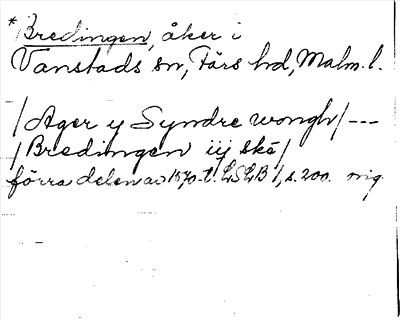 *Bredingen, åker i
Vanstads sn, Färs hd, Malm. l.
/Ager y Syndre wongh/ ---
/Bredingen iij skè/
förra delen av 1570-t. LSLB 1, s. 200. mig.